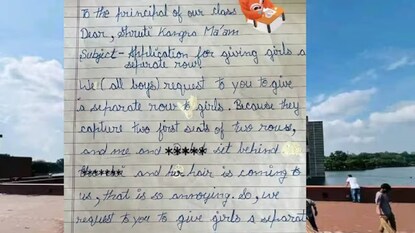 To the principal of our class
Dear, Shruti Kangra Ma'am
Subject- Application for giving girls a
separate row
We (all boys) request to you to give
a separate row to girls. Because they
capture two first seats of two rows,
and me and ***** set behind
and her hair is coming to
us, that is so annoying. So, we
request to you to give girls a separate